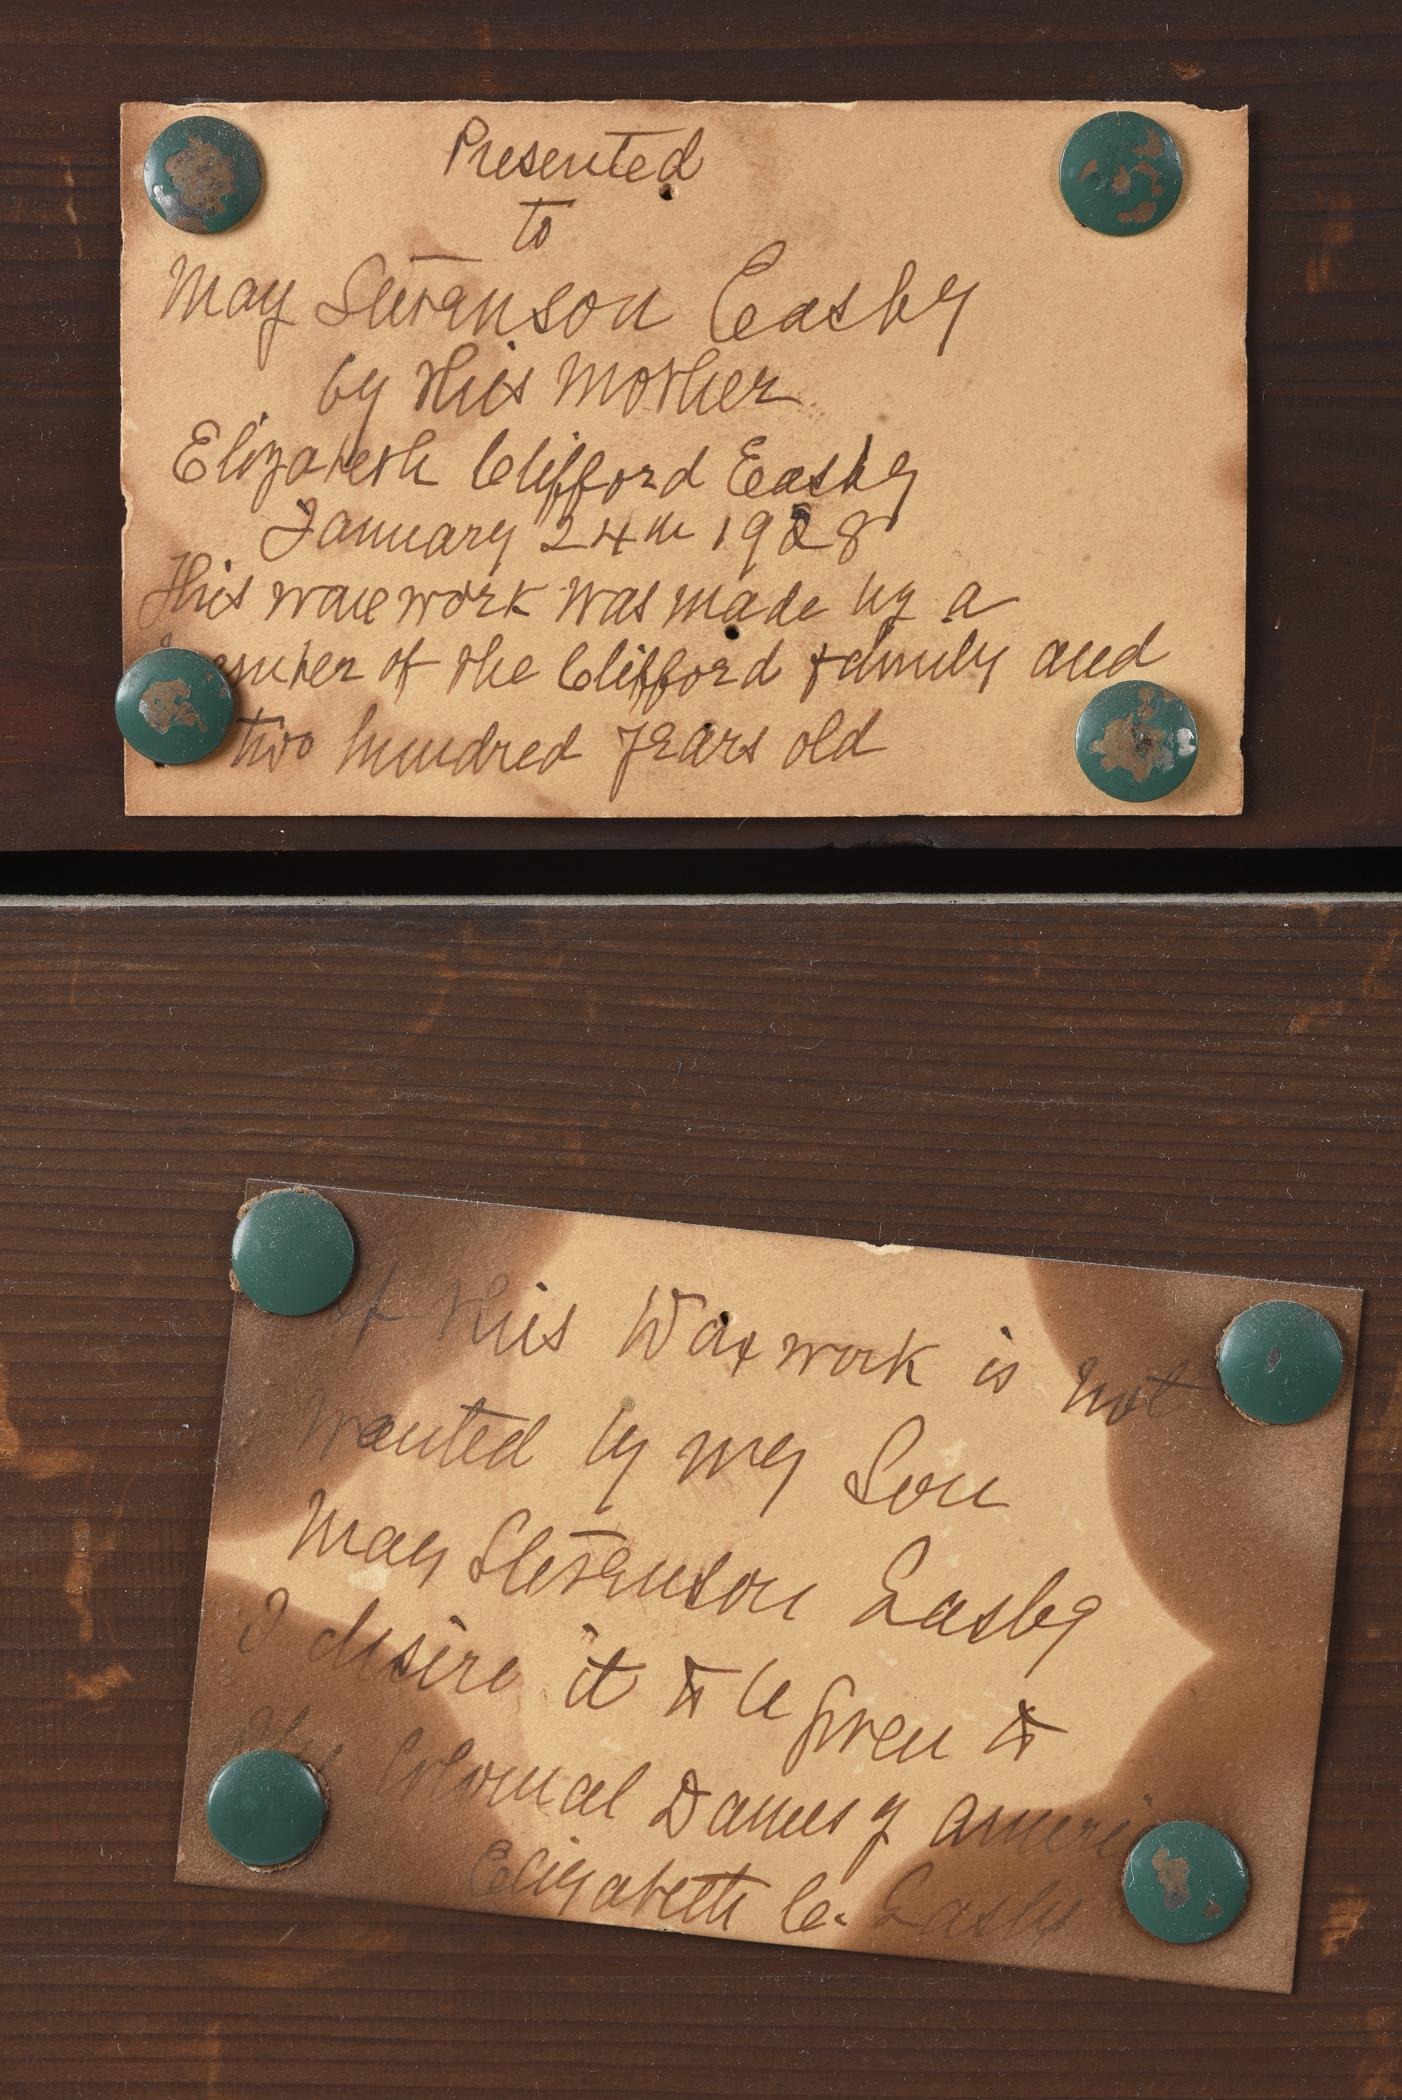 Presented
to
May Stevenson Easby
by this mother
Elizabeth Clifford Easby
January 24th 1928
This wax work was made by a
member of the Clifford family and
two hundred years old
if this Wax work is not
wanted by my Son
May Stevenson Easby
I desire it to be given to
the Colonial Dames of Ameri
Elizabeth C. Easby